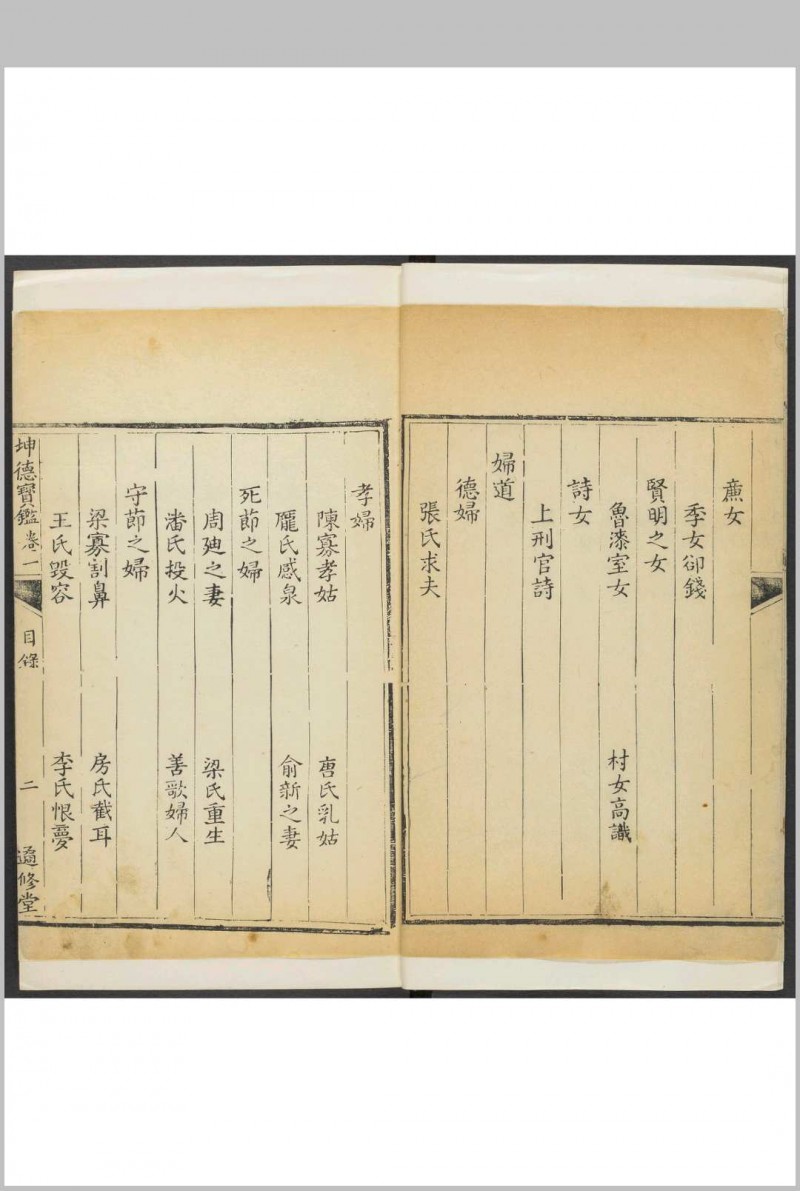 廉女
季女卻錢
賢明之女
魯漆室女 村女高識
詩女
上刑官詩
婦道
德婦
張氏求夫
孝婦
陳寡孝姑 唐氏乳姑
龐氏感泉 俞新之妻
死節之婦
周迪之妻 梁氏重生
潘氏投火 善歌婦人
守節之婦
梁寡割鼻 房氏截耳
王氏毀容 李氏恨夢
坤德寶鑑卷一 目錄 二 適修堂